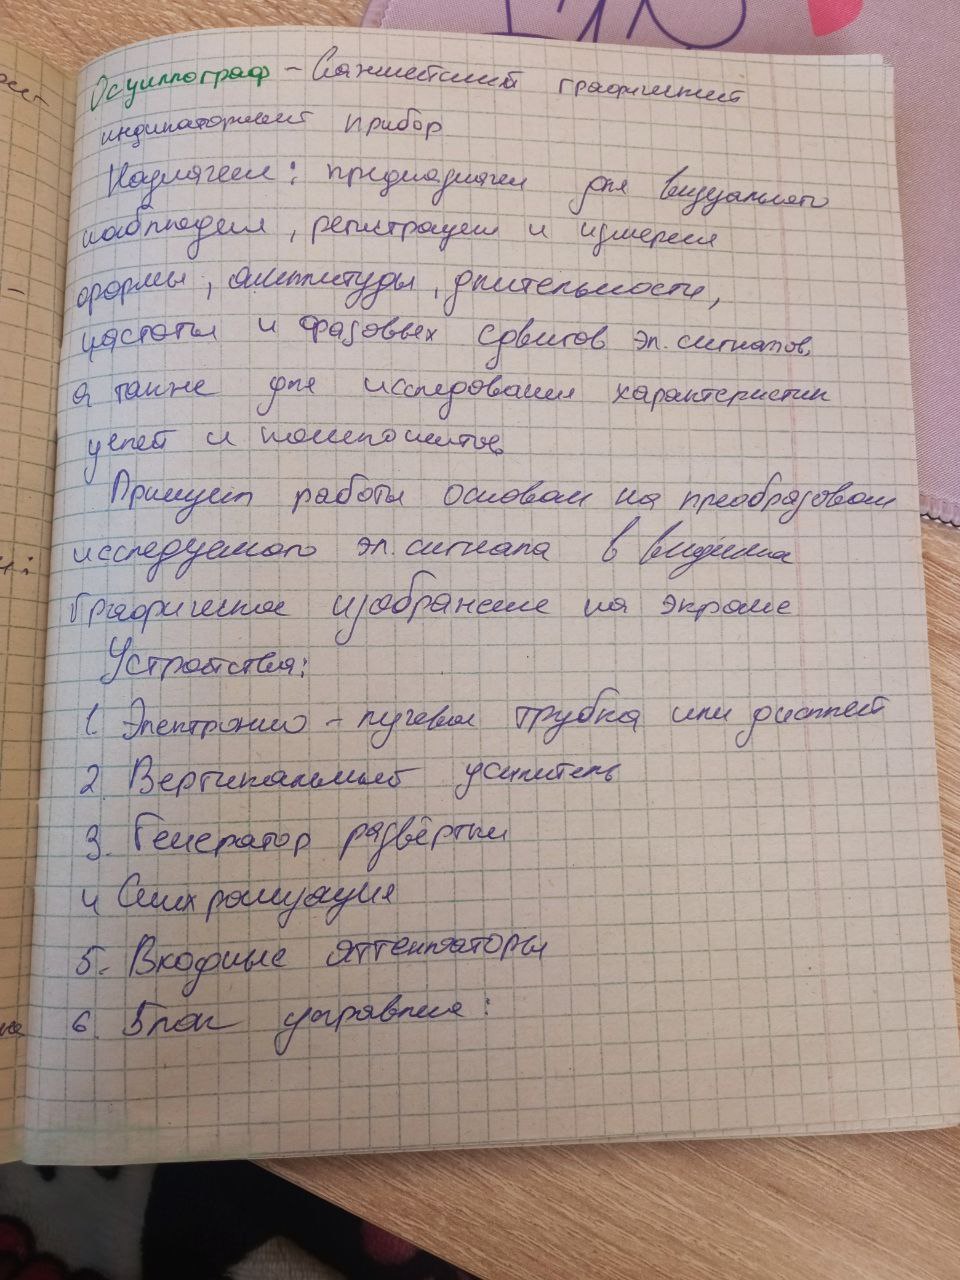 Осциллограф – графический
индикаторный прибор
Назначен: предназначен для визуального
наблюдения, регистрации и измерения
формы, амплитуды, длительности,
частоты и фазовых сдвигов эл. сигналов,
а также для исследования характеристик
цепей и компонентов.
Принцип работы основан на преобразован
исследуемого эл. сигнала в видимое
графическое изображение на экране
Устройства:
1. Электронно – лучевая трубка или дисплей
2. Вертикальный усилитель
3. Генератор развёртки
4 Синхронизация
5. Входные аттенюаторы
6. Блок управления: